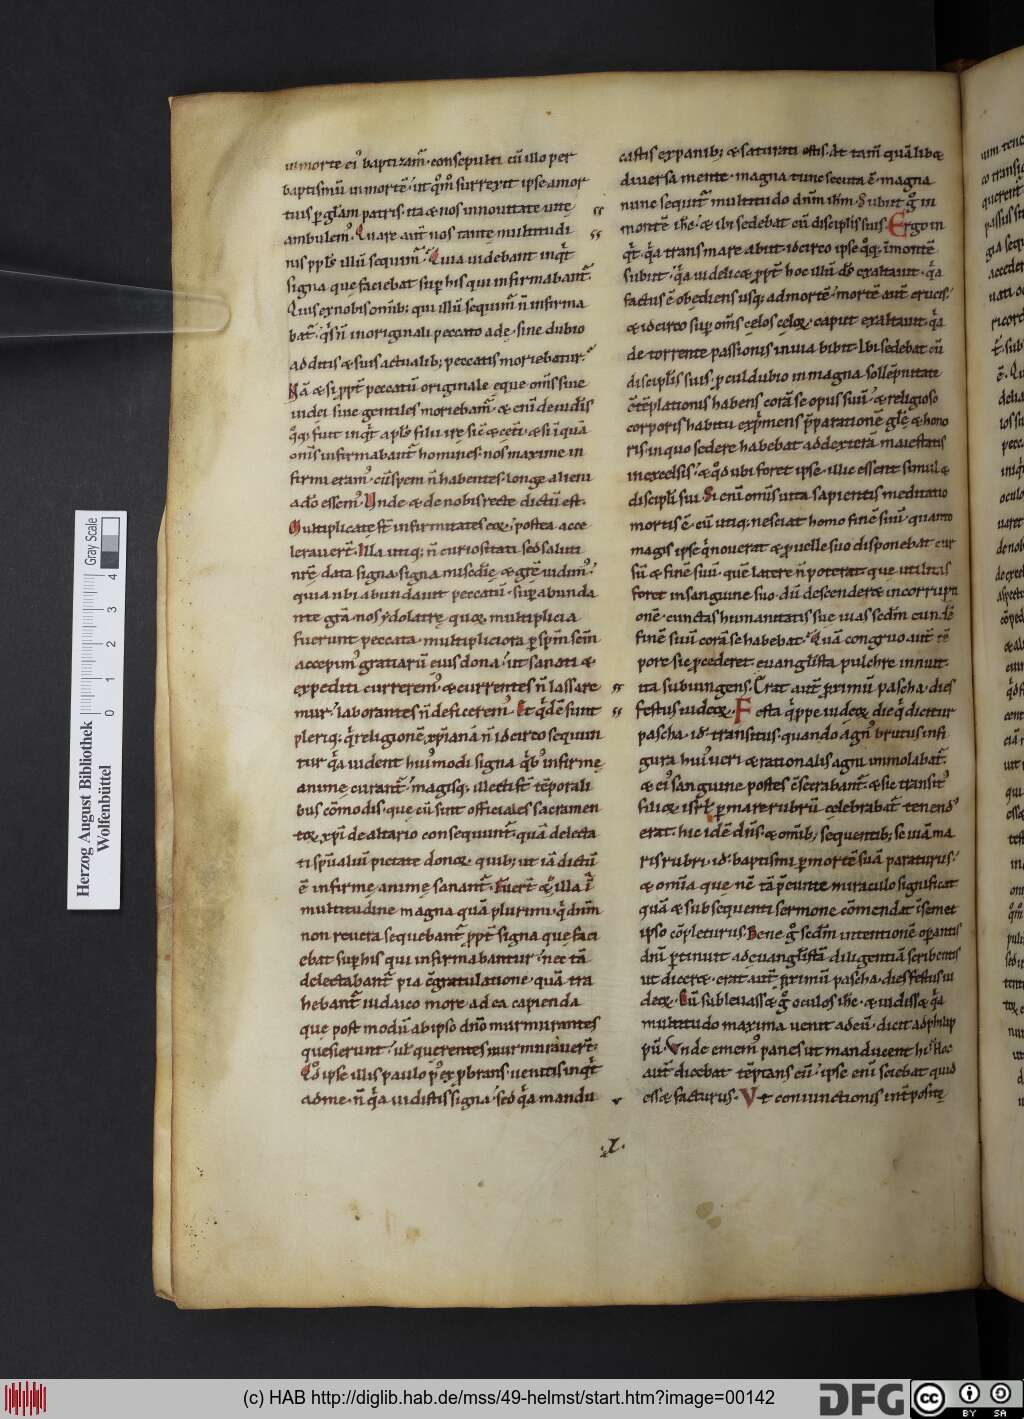 in morte ei᾽ baptizam̃· consepulti cũ illo per
baptismũ in mortẽ· ut qm̊o surrexit ipse a mor
tuis p gl̃am patris· ita ⁊ nos in nouitate uitę
ambulem᾽. Quare aut̃ nos tantę multitudi
nis ppl̃s illũ sequim̃? Quia uidebant inqt̃
signa que faciebat sup his qui infirmabant̃.
Quis ex nobis omĩb; qui illũ sequim̃ ñ infirma
bat̃· q̊s ñ in originali peccato adę· sine dubio
additis ⁊ suis actualib; peccatis moriebatur?
Nã ⁊ si ppt̃ peccatũ originale eque om̃s siue
iudei siue gentiles moriebam̃· ⁊ enĩ de iudẽis
q̊q; fuit inqt̃ apl̃s filii irę sic̃ ⁊ cęti· ⁊ si iquã
om̃s infirmabant̃ homines· nos maxime in
firmi eram᾽· cũ spem ñ habentes· longe alieni
a do essem᾽. Unde ⁊ de nobis recte dictũ est.
Multiplicatę st̃ infirmitates eoꝝ· postea acce
lerauer̃t. Illa utiq; ñ curiositati sed saluti
nr̃ę data signa· signa misc̃dię ⁊ gr̃ę uidim᾽·
quia ubi abundauit peccatũ· sup abunda
uite gr̃a· nos ydolatrę quoꝝ multiplicia
fuerunt peccata· multipliciora p sp̃m sc̃m
accepim᾽ gratiarũ eius dona· ut sanati ⁊
expediti currerem᾽· ⁊ currentes ñ lassare
mur· laborantes ñ deficerem᾽. Et qdẽ sunt
pleriq; q̃ religionẽ xp̃ianã ñ idcirco sequun
tur q̃a uident hui᾽modi signa q̃b᾽ infirmę
animę curant̃· magisq; illecti st̃ tẽporali
bus cõmodis· que eũ sunt officiales sacramen
toꝝ xp̃i de altario consequunt̃· quã delecta
ti sp̃ualiũ pietate donoꝝ· quib; ut iã dictũ
ẽ infirmę animę sanant̃. Fuer̃t ⁊ illa ĩ
multitudine magna quã plurimi· q̃ dnm̃
non reuera sequebant̃ ppt̃ signa que faci
ebat sup his qui infirmabantur· nec tã
delectabant̃ pia cõgratulatione· quã tra
hebant̃ iudaico more ad ea capienda
que post modũ ab ipso dnõ murmurantes
quesierunt· ul̃ querentes murmurauer̃t.
Qd̊ ipse illis paulo p᾽ exprobrans· uenitis inqt̃
ad me· ñ q̃a uidistis signa· sed q̃a mandu
castis ex panib; ⁊ saturati estis. At tam̃ quãlib⁊
diuersa mente· magna tunc secuta ẽ· magna
nunc sequit̃ multitudo dnm̃ ihm̃. Subiit g̊ in
montẽ ihc̃· ⁊ ibi sedebat cũ discipl̃is suis. Ergo in
qt̃· q̃a trans mare abiit· idcirco ipse q̊q; ĩ montẽ
subiit· q̃a uidelic⁊ ppt̃ hoc illũ ds̃ exaltauit· q̃a
factus ẽ obediens usq; ad mortẽ· mortẽ aut̃ crucis·
⁊ idcirco sup om̃s cęlos cęloꝝ· caput exaltauit· q̃a
de torrente passionis in uia bibit. Ibi sedebat cũ
discipl̃is suis· p cul dubio in magna sollẽpnitate
cõtẽplationis habens corã se opus suũ· ⁊ religioso
corporis habitu exp̃mens pparationẽ gl̃ę ⁊ hono
ris· in quo sedere habebat ad dexterã maiestatis
in excelsis· ⁊ qd̊ ubi foret ipse· illic essent simul ⁊
discipl̃i sui. Si enĩ omĩs uita sapientis meditatio
mortis ẽ· cũ utiq; nesciat homo finẽ suũ· quanto
magis ipse q̃ nouerat ⁊ p uelle suo disponebat cur
sũ ⁊ finẽ suũ· quẽ latere ñ poterat· que utilitas
foret in sanguine suo· dũ descender⁊ in corrupti
onẽ· cunctas humanitatis suę uias sedm̃ eundẽ
finẽ suũ corã se habebat. Quã congruo aut̃ tẽ
pore sic pcederet· euangl̃ista pulchre innuit·
ita subiungens. Erat aut̃ proximũ pascha· dies
festus iudeoꝝ. Festa q̃ppe iudeoꝝ die q̃ dicitur
pascha· id᾽ transitus· quando agn᾽ brutus in fi
gura hui᾽ ueri ⁊ rationalis agni immolabat̃·
⁊ ei᾽ sanguine postes cõsecrabant̃· ⁊ sic transit᾽
filioꝝ isrl̃ p mare rubrũ celebrabat̃· tenend᾽
erat· hic idẽ dñs· ⁊ omĩb; sequentib; se uiã ma
ris rubri· id᾽ baptismi p mortẽ suã paraturus·
⁊ omĩa que nc̃ tã pcunte miraculo significat
quã ⁊ subsequenti sermone cõmendat ĩ semet
ipso cõpleturus. Bene g̊ sedm̃ intentionẽ opantis
dñi ptinuit ad euangl̃istã diligentiã scribentis
ut dicer⁊· erat aut̃ proximũ pascha· dies festus iu
deoꝝ. Cũ subleuass⁊ g̊ oculos ihc̃· ⁊ uidiss⁊ q̃a
multitudo maxima uenit ad eũ· dicit ad philip
pũ. Unde emem᾽ panes ut manducent hi? Hoc
aut̃ dicebat tẽptans eũ· ipse enĩ sciebat quid
ess⁊ facturus. Ut coniunctionis int̃positę
·I·
Herzog August Bibliothek
Wolfenbüttel
Gray Scale
0 1 2 3 4
(c) HAB http://diglib.hab.de/mss/49-helmst/start.htm?image=00142
DFG
cc BY SA